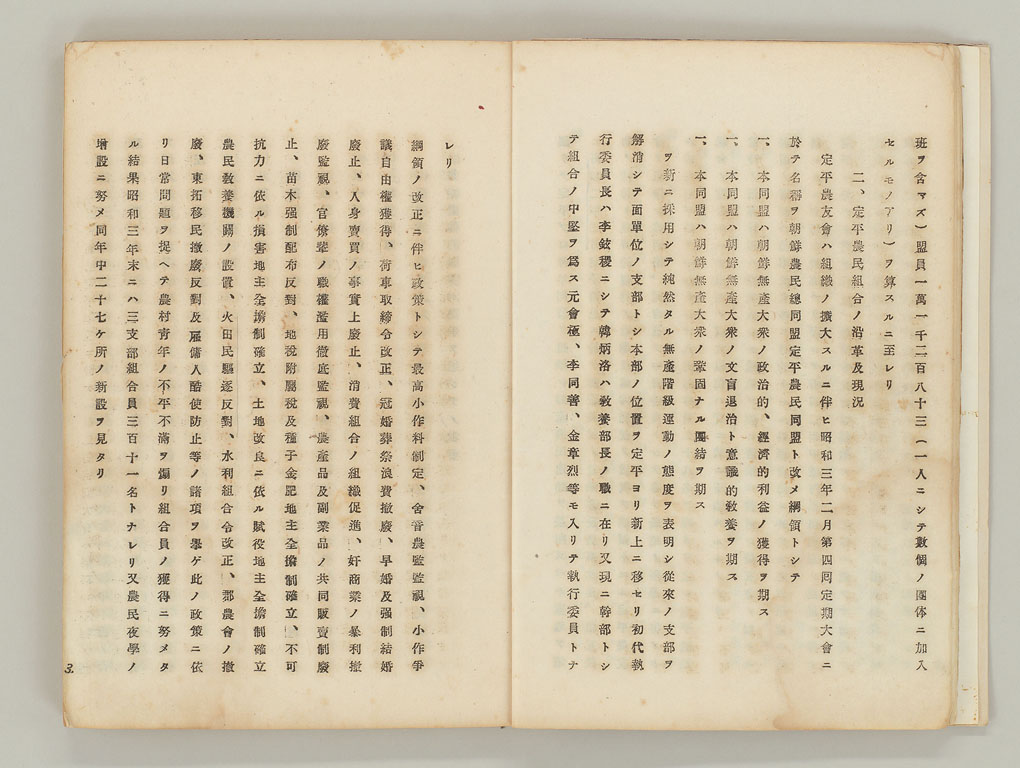 班ヲ含マズ）盟員一萬一千二百八十三（一人ニシテ數個ノ團体ニ加入
セルモノアリ）ヲ算スルニ至レリ
二、定平農民組合ノ沿革及現況
定平農友會ハ組織ノ擴大スルニ伴ヒ昭和三年二月第四回定期大會ニ
於テ名稱ヲ朝鮮農民總同盟定平農民同盟ト改メ綱領トシテ
一、本同盟ハ朝鮮無產大衆ノ政治的、經濟的利益ノ獲得ヲ期ス
一、本同盟ハ朝鮮無產大衆ノ文盲退治ト意識的敎養ヲ期ス
一、本同盟ハ朝鮮無產大衆ノ鞏固ナル團結ヲ期ス
ヲ新ニ採用シテ純然タル無產階級運動ノ態度ヲ表明シ從來ノ支部ヲ
解消シテ面單位ノ支部トシ本部ノ位置ヲ定平ヨリ新上ニ移セリ初代執
行委員長ハ李鼓稷ニシテ韓炳洛ハ敎養部長ノ職ニ在リ又現ニ幹部トシ
テ組合ノ中堅ヲ爲ス元會極、李同善、金章烈等モ入リテ執行委員トナ
レリ
綱領ノ改正ニ伴ヒ政策トシテ最高小作料制定、舍音農監監視、小作爭
議自由權獲得、荷車取締令改正、冠婚葬祭浪費撤廢、早婚及强制結婚
廢止、人身賣買ノ事實上廢止、消費組合ノ組織促進、奸商業ノ暴利撤
廢監視、官僚輩ノ職權濫用徹底監視、農產品及副業品ノ共同販賣制廢
止、苗木强制配布反對、地稅附屬稅及種子金肥地主全擔制確立、不可
抗力ニ依ル損害地主全擔制確立、土地改良ニ依ル賦役地主全擔制確立
農民敎養機關ノ設置、火田民驅逐反對、水利組合令改正、郡農會ノ撤
廢、東拓移民撤廢反對及雇傭人酷使防止等ノ諸項ヲ擧ゲ此ノ政策ニ依
リ日常問題ヲ捉ヘテ農村靑年ノ不平不滿ヲ煽リ組合員ノ獲得ニ努メタ
ル結果昭和三年末ニハ三支部組合員三百十一名トナレリ又農民夜學ノ
增設ニ努メ同年中二十七ケ所ノ新設ヲ見タリ
3.